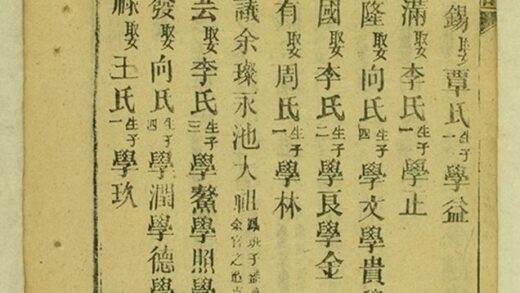 錫娶覃氏生子一學益
滿娶李氏生子一學止
隆娶向氏生子四學文學貴
國娶李氏生子二學良學金
有娶周氏生子一學林
議余璨永池大祖
云娶李氏生子三學鰲學照學
發娶向氏生子四學潤學德學
祿娶王氏生子一學玖